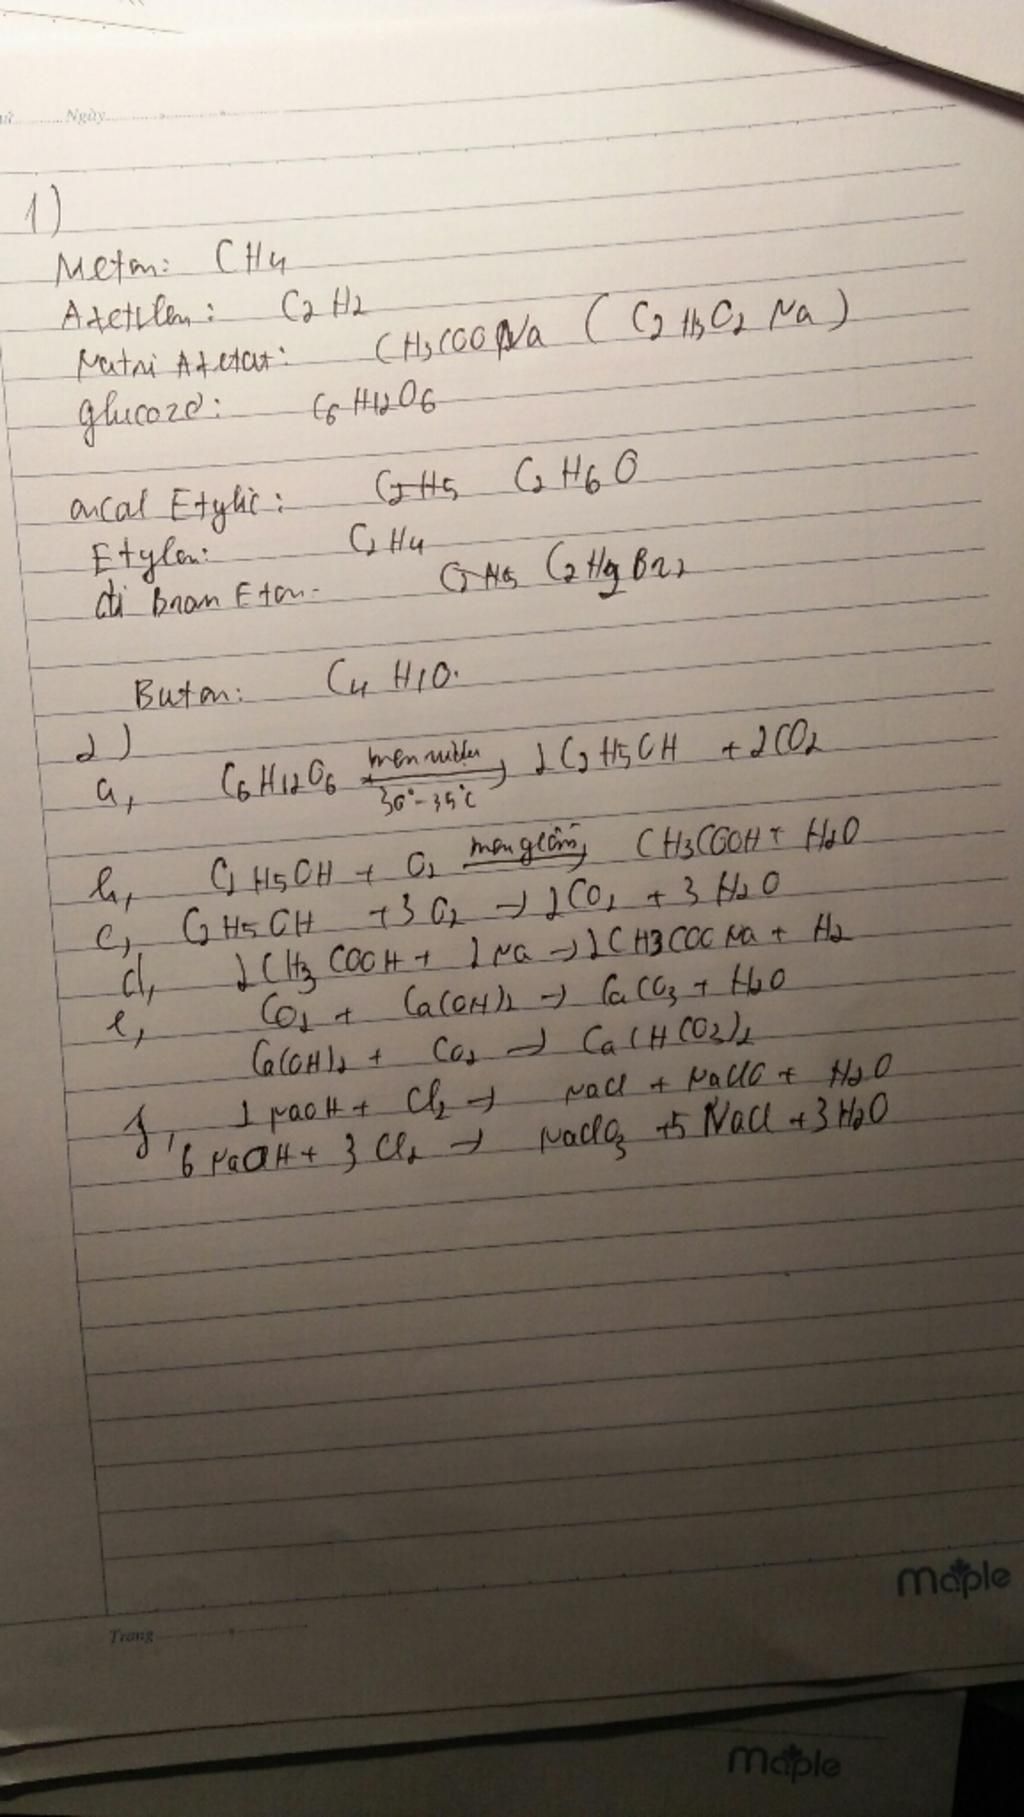 Ngày
1)
Metan: CH4
Axetilen: C2H2
Natri Axetat: CH3COONa (C2H3O2Na)
glucozơ: C6H12O6
ancol Etylic: C2H5 C2H6O
Etylen: C2H4
đi Brom Etan: C2H5 C2H4Br2
Butan: C4H10.
2)
a, C6H12O6 men rượu 30°-35°C 2C2H5OH + 2CO2
b, C2H5OH + O2 men giấm CH3COOH + H2O
c, C2H5OH + 3O2 → 2CO2 + 3H2O
d, 2CH3COOH + 2Na → 2CH3COONa + H2
e, CO2 + Ca(OH)2 → CaCO3 + H2O
Ca(OH)2 + CO2 → Ca(HCO3)2
f, 2NaOH + Cl2 → NaCl + NaClO + H2O
6NaOH + 3Cl2 → NaClO3 + 5NaCl + 3H2O
maple
Trang
maple